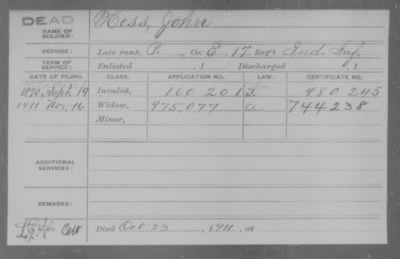 DEAD
NAME OF SOLDIER: Hess, John
SERVICE: Late rank, P. Co. E, 17 Reg't Ind. Inf.
TERM OF SERVICE: Enlisted , 1 Discharged , 1
DATE OF FILING. CLASS. APPLICATION NO. LAW. CERTIFICATE NO.
Sept. 19 Invalid, 160 201 480 245
1911 Nov. 16 Widow, 975,077 a 744238
Minor,
ADDITIONAL SERVICES:
REMARKS:
Died Oct 23, 1911, at